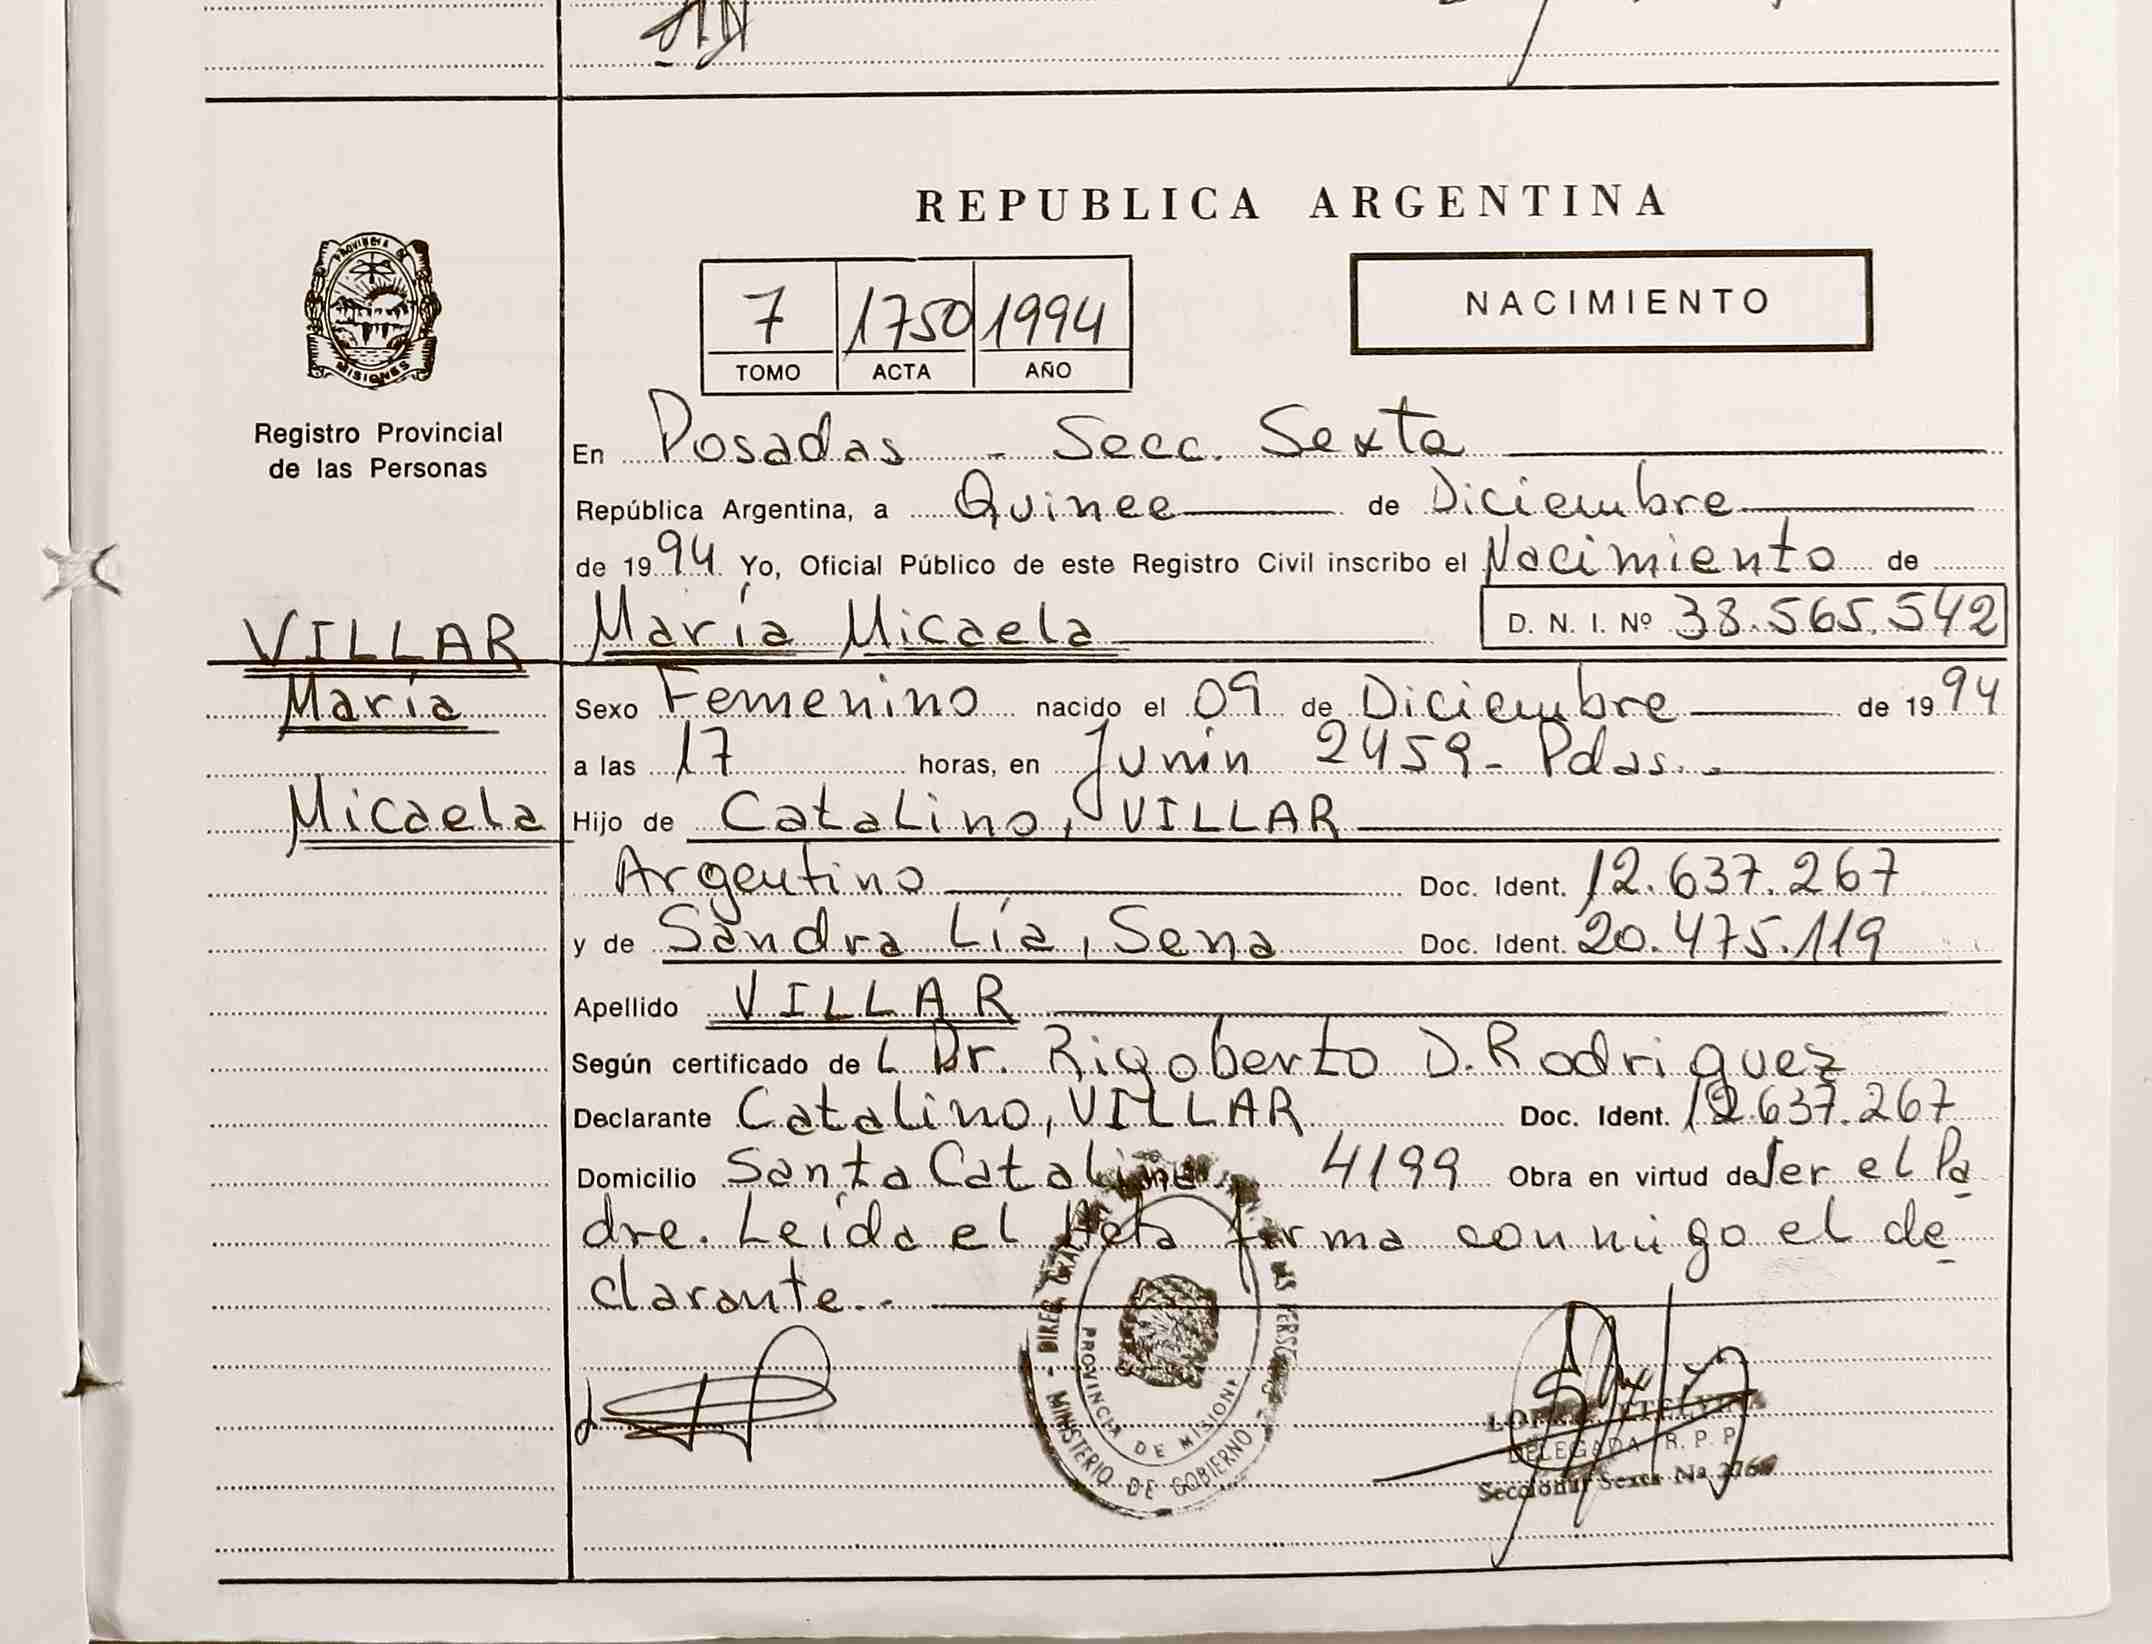 REPUBLICA ARGENTINA
PROVINCIA DE
MISIONES
Registro Provincial
de las Personas
7 1750 1994
TOMO ACTA AÑO
NACIMIENTO
En Posadas - Secc. Sexta
República Argentina, a Quince de Diciembre
de 1994 Yo, Oficial Público de este Registro Civil inscribo el Nacimiento de
VILLAR
María
Micaela
María Micaela D. N. I. Nº 38.565.542
Sexo Femenino nacido el 09 de Diciembre de 1994
a las 17 horas, en Junín 2459- Pdas.-
Hijo de Catalino, VILLAR
Argentino Doc. Ident. 12.637.267
y de Sandra Lía, Sena Doc. Ident. 20.475.119
Apellido VILLAR
Según certificado de L Dr. Rigoberto D. Rodriguez
Declarante Catalino, VILLAR Doc. Ident. 12.637.267
Domicilio Santa Catalina 4199 Obra en virtud de Ser el Pa
dre. Leída el Acta firma conmigo el de
clarante.-
PROVINCIA DE MISIONES
MINISTERIO DE GOBIERNO
DELEGADA R. P. P.
Seccional Sexta Nº